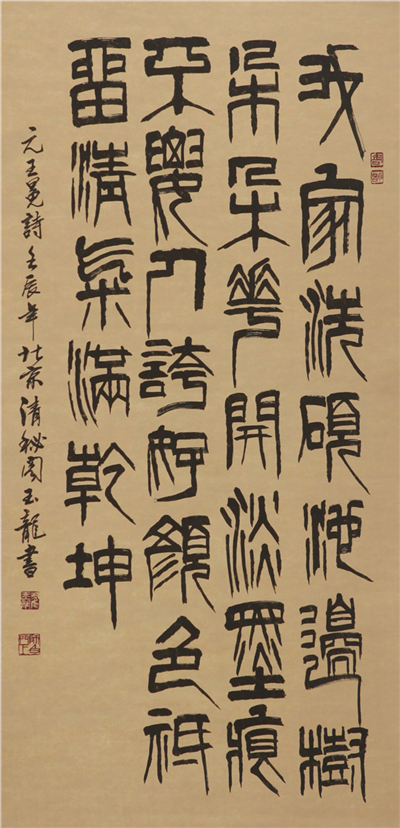 我家洗硯池邊樹
朵朵華開淡墨痕
不要人誇好顏色祇
留清氣滿乾坤
元王冕詩壬辰年北京清秘閣玉龍書